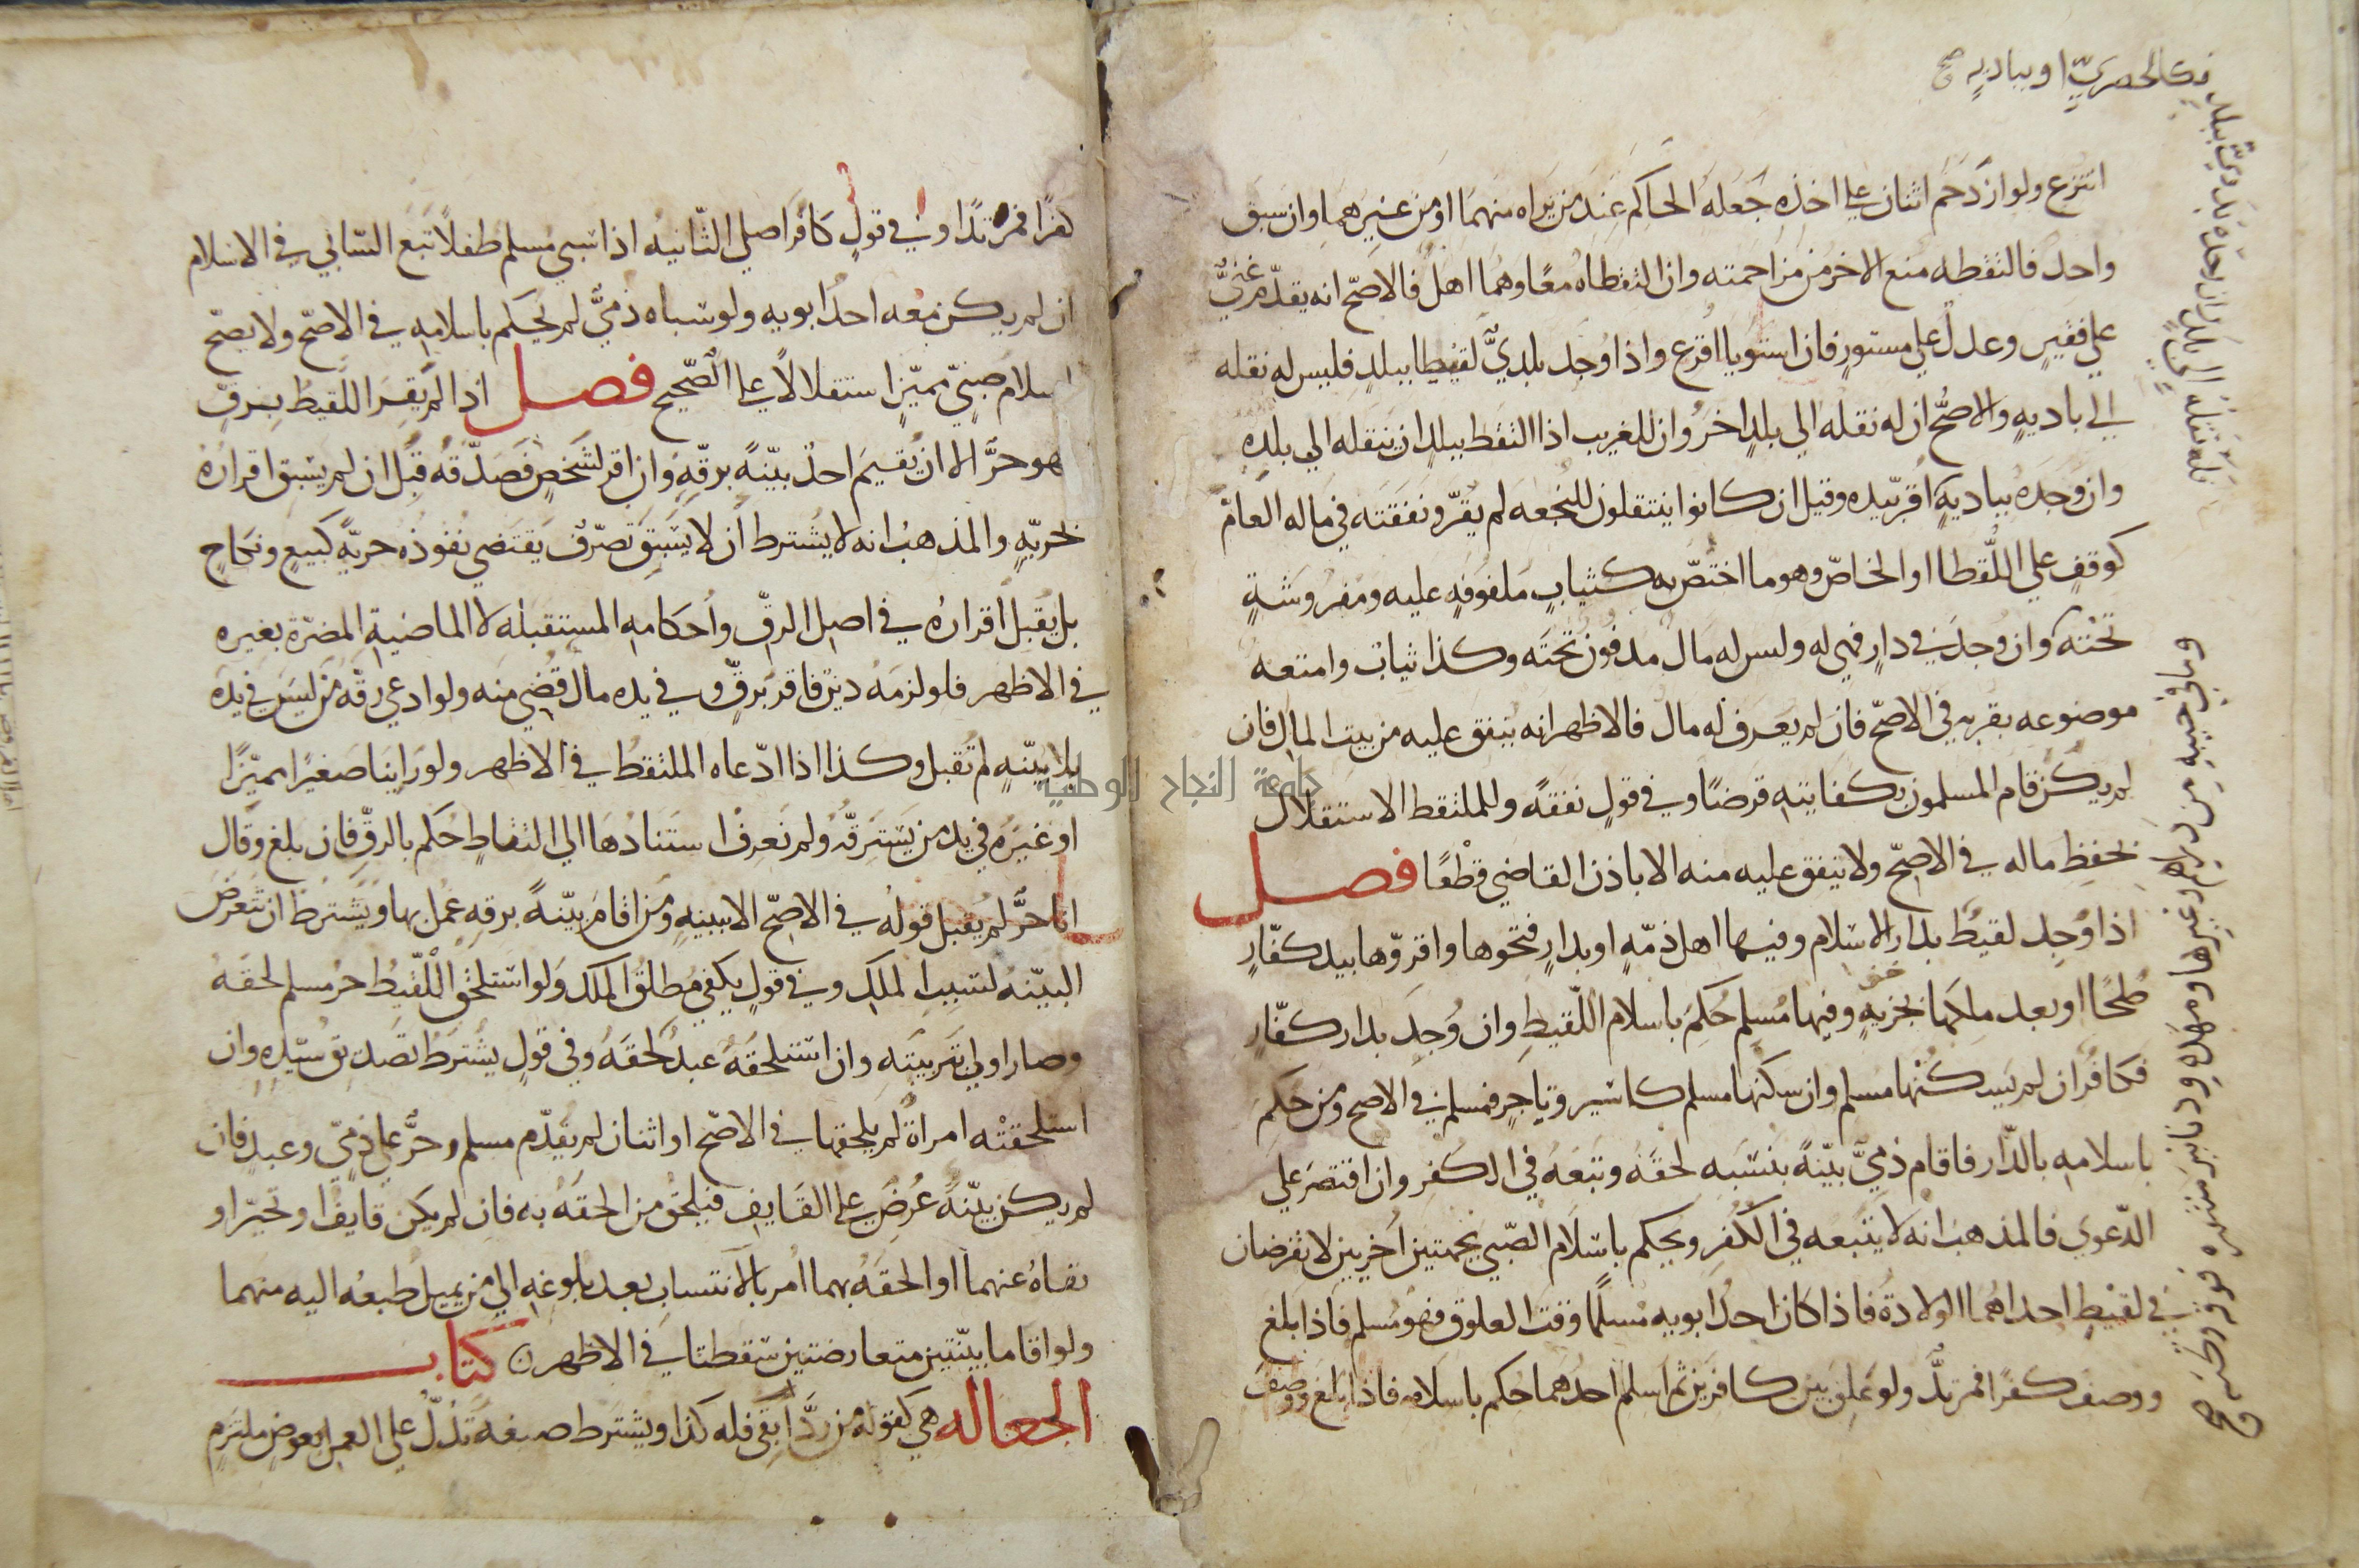 انتزع ولو ازدحم اثنان علي اخذه جعله الحاكم عند من يراه منهما او من غيرهما وان سبق
واحد فالتقطه منع الاخر من مزاحمته وان التقطاه معًا وهما اهل فالاصح انه يقدم غني
علي فقيرٍ وعدل علي مستورٍ فان استويا اقرع واذا وجد بلدي لقيطا ببلدٍ فليس له نقله
الي باديهٍ والاصح ان له نقله الي بلدٍ اخر وان للغريب اذا التقط ببلدٍ ان ينقله الي بلده
وان وجده بباديهٍ اقر بيده وقيل ان كانوا ينتقلون للنجعه لم يقر ونفقته في ماله العام
كوقفٍ علي اللقطا او الخاص وهو ما اختص به كثيابٍ ملفوفةٍ عليه ومفروشةٍ
تحته وان وجد في دارٍ فهي له وليس له مال مدفون تحته وكذا ثياب وامتعه
موضوعه بقربه في الاصح فان لم يعرف له مال فالاظهر انه ينفق عليه من بيت المال فان
لم يكن قام المسلمون بكفايته قرضًا وفي قولٍ نفقةً وللملتقط الاستقلال
بحفظ ماله في الاصح ولا ينفق عليه منه الا باذن القاضي قطعًا فصل
اذا وجد لقيط بدار الاسلام وفيها اهل ذمّهٍ او بدارٍ فتحوها واقروها بيد كفّارٍ
صلحًا او بعد ملكها بجزيهٍ وفيها مسلم حكم باسلام اللقيط وان وجد بدار كفّارٍ
فكافر ان لم يسكنها مسلم وان سكنها مسلم كاسير وتاجر فمسلم في الاصح ومن حكم
باسلامه بالدار فاقام ذمي بينةً بنسبه لحقه وتبعه في الكفر وان اقتصر علي
الدعوي فالمذهب انه لا يتبعه في الكفر ويحكم باسلام الصبي بجهتين اخريين لا تفرضان
في لقيط احداهما الولادة فاذا كان احد ابويه مسلمًا وقت العلوق فهو مسلم فاذا بلغ
ووصف كفرًا فمرتد ولو علق بين كافرين ثم اسلم احدهما حكم باسلامه فاذا بلغ ووصف
فكالحضري او بباديه صح
وباقي جيبه من دراهم وغيرها ومهده ودنانير منثوره فوقه وتحته صح
كفرًا فمرتدًا وفي قولٍ كافر اصلي الثانيه اذا سبي مسلم طفلًا تبع السابي في الاسلام
ان لم يكن معه احد ابويه ولو سباه ذمي لم يحكم باسلامه في الاصح ولا يصح
اسلام صبي مميزٍ استقلالًا علي الصحيح فصل اذا لم يقر اللقيط برقٍ
فهو حر الا ان يقيم احد بينةً برقه وان اقر لشخصٍ فصدقه قبل ان لم يسبق اقراره
بحريهٍ والمذهب انه لا يشترط ان لا يسبق تصرف يقتضي نفوذه حريهً كبيعٍ ونكاحٍ
بل يقبل اقراره في اصل الرق واحكامه المستقبله لا الماضية المضرة بغيره
في الاظهر فلو لزمه دين فاقر برقٍ وفي يده مال قضي منه ولو ادعي رقه من ليس في يده
بلا بينهٍ لم تقبل وكذا اذا ادعاه الملتقط في الاظهر ولو راينا صغيرًا مميزًا
او غيره في يد من يسترقه ولم نعرف استنادها الي التقاطٍ حكم بالرق فان بلغ وقال
انا حر لم يقبل قوله في الاصح الا ببينهٍ ومن اقام بينةً برقه عمل بها ويشترط ان تتعرض
البينه لسبب الملك وفي قولٍ يكفي مطلق الملك ولو استلحق اللقيط حر مسلم لحقه
وصار اولي بتربيته وان استلحقه عبد لحقه وفي قولٍ يشترط تصديق سيده وان
استلحقته امراة لم يلحقها في الاصح او اثنان لم يقدم مسلم وحر علي ذمي وعبدٍ فان
لم يكن بينةً عرض علي القايف فيلحق من الحقه به فان لم يكن قايف او تحير او
نفاه عنهما او الحقه بهما امر بالانتساب بعد بلوغه الي من يميل طبعه اليه منهما
ولو اقاما بينتين متعارضتين سقطتا في الاظهر كتاب
الجعاله هي كقوله من رد ابقي فله كذا ويشترط صيغةً تدل علي العمل بعوضٍ ملتزم
جامعة النجاح الوطنية